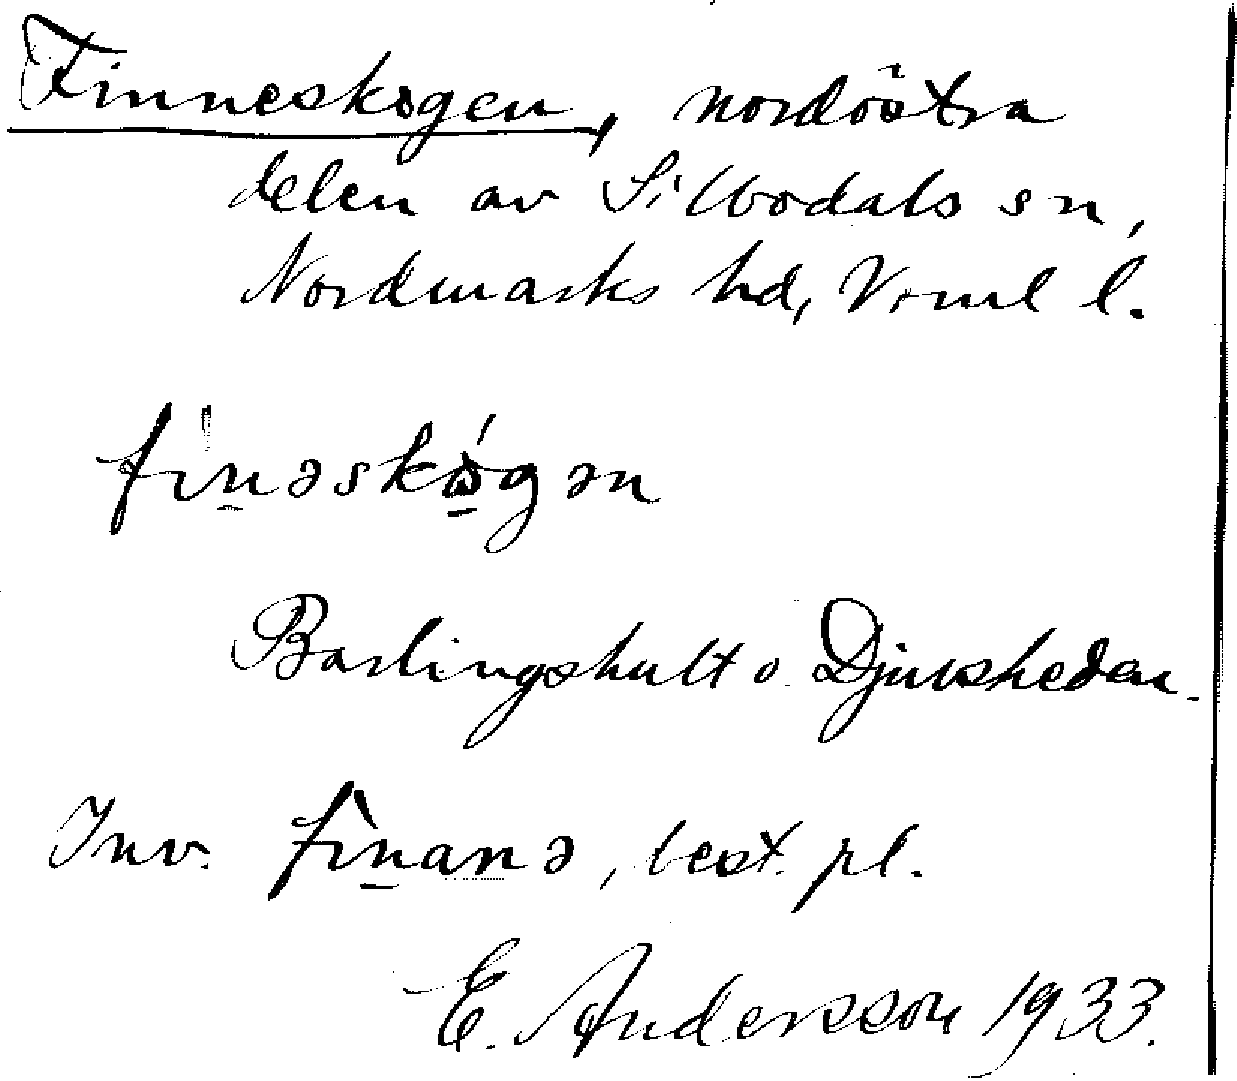 Finneskogen, nordöstra
delen av Silbodals sn,
Nordmarks hd, Vrml l.
fìnəskógən
Barlingshult o. Djuvsheden.
Inv. fìnanə, best. pl.
E. Andersson 1933.